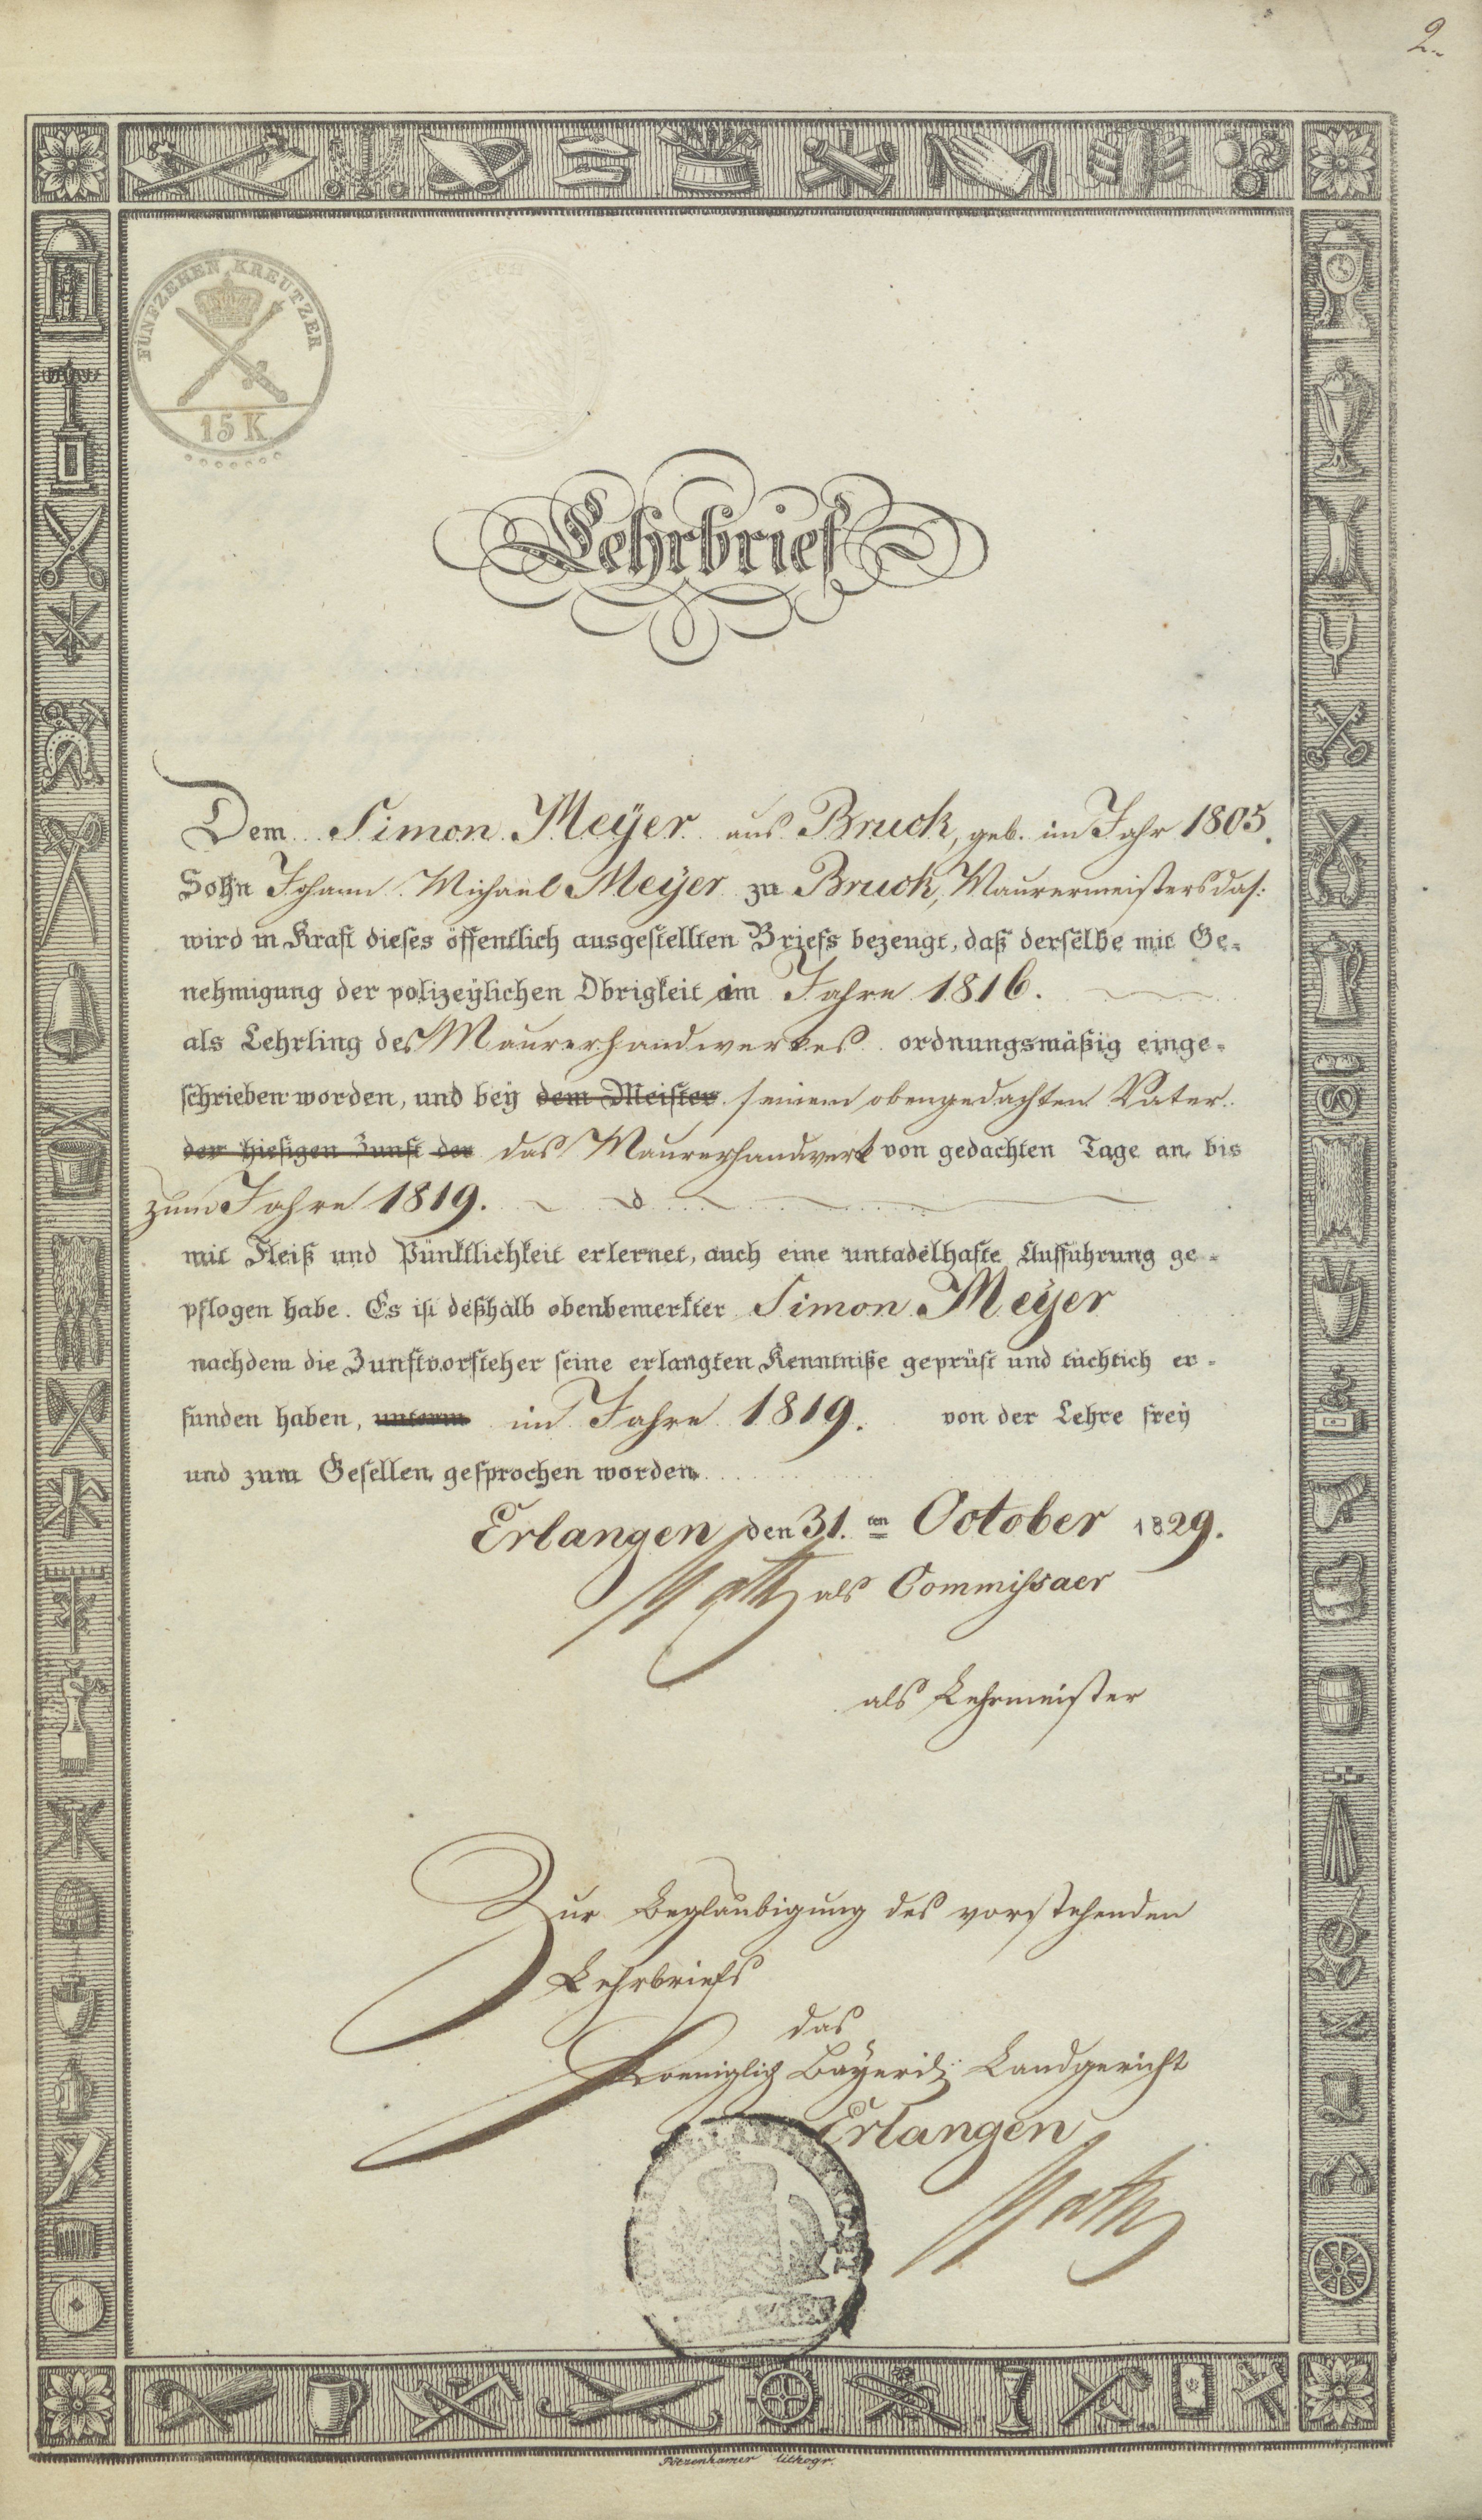 2.
FÜNFZEHEN KREUTZER
15 K
Lehrbrief
Dem Simon Meÿer aus Bruck, geb. im Jahr 1805.
Sohn Johann Michael Meÿer zu Bruck, Maurermeisters das:
wird in Kraft dieses öffentlich ausgestellten Briefs bezeugt, daß derselbe mit Ge-
nehmigung der polizeÿlichen Obrigkeit im Jahre 1816.
als Lehrling des Maurerhandwerkes ordnungsmäßig einge-
schrieben worden, und beÿ dem Meister seinem obengedachten Vater
der hiesigen Zunft der das Maurerhandwerk von gedachten Tage an, bis
zum Jahre 1819.
mit Fleiß und Pünktlichkeit erlernet, auch eine untadelhafte Aufführung ge-
pflogen habe. Es ist deßhalb obenbemerkter Simon Meÿer
nachdem die Zunftvorsteher seine erlangten Kenntniße geprüft und tüchtich er-
funden haben, unterm im Jahre 1819. von der Lehre freÿ
und zum Gesellen gesprochen worden.
Erlangen den 31.ten October 1829.
als Commissaer
als Lehrmeister
Zur Beglaubigung des vorstehenden
Lehrbriefs
das
Koeniglich Bayerisch: Landgericht
Erlangen
ERLANGEN
lithogr.